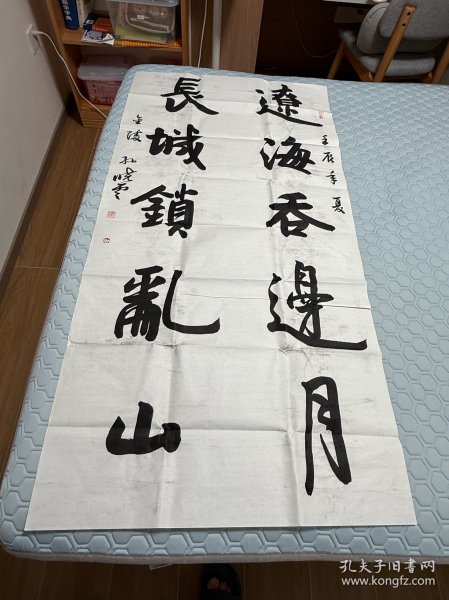 遼海吞邊月
壬辰年夏
長城鎖亂山
金陵 孔曉雲
孔夫子旧书网
www.kongfz.com